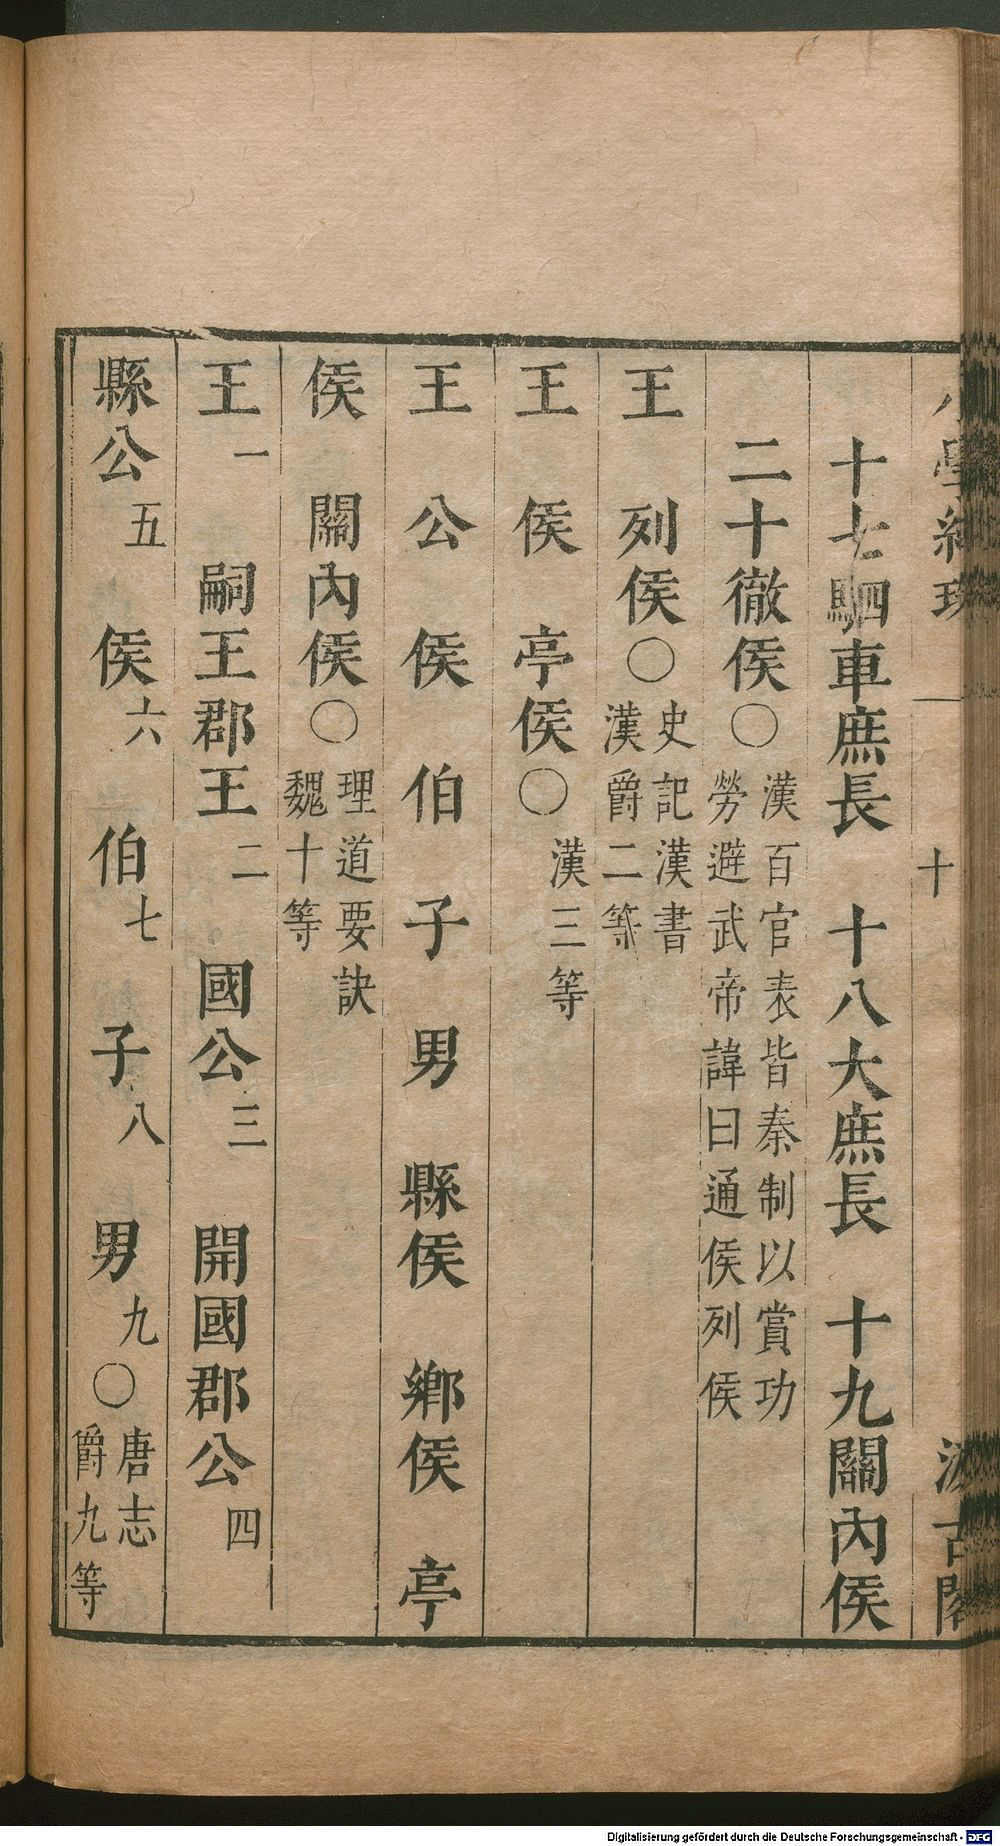 十七駟車庶長　十八大庶長　十九關內侯
二十徹侯○漢百官表皆秦制以賞功
勞避武帝諱曰通侯列侯
王　列侯○史記漢書
漢爵二等
王　侯　亭侯○漢三等
王　公　侯　伯　子　男　縣侯　鄉侯　亭
侯　關內侯○理道要訣
魏十等
王一　嗣王郡王二　國公三　開國郡公四
縣公五　侯六　伯七　子八　男九○唐志
爵九等
十
Digitalisierung gefördert durch die Deutsche Forschungsgemeinschaft - DFG